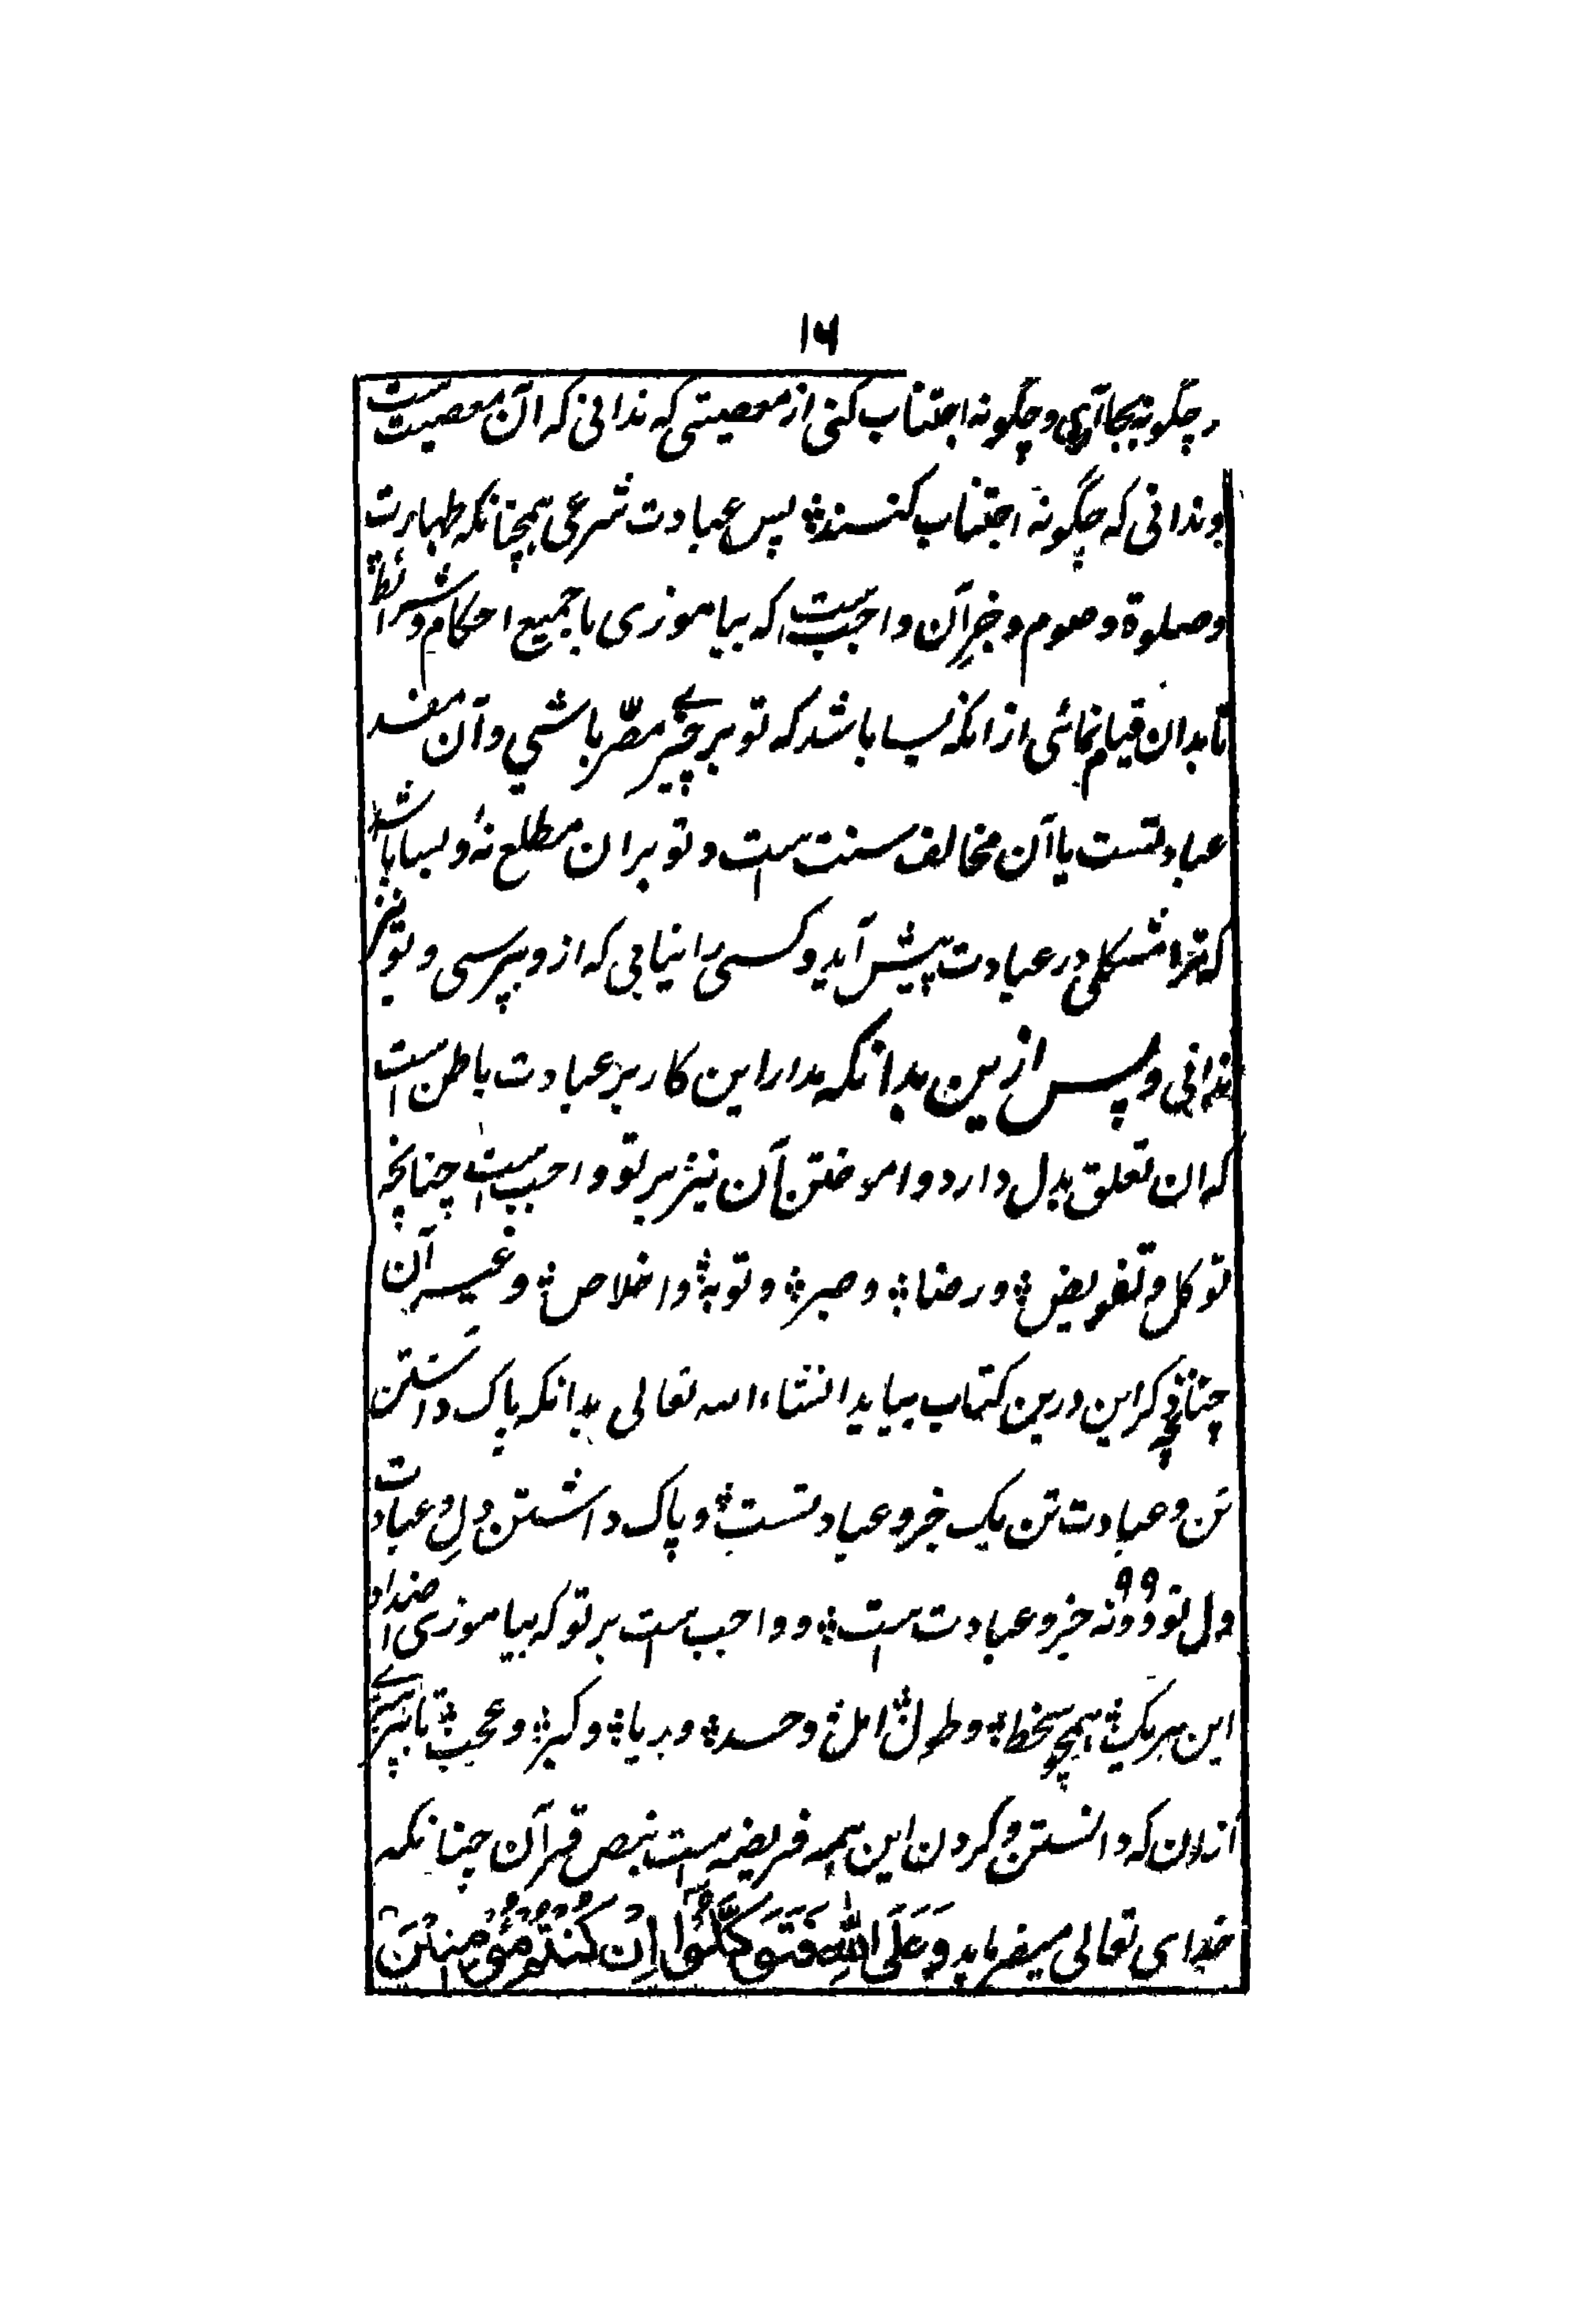 ۱۶
چگونه بجا آری و چگونه اجتناب کنی از معصیتی که ندانی که آن معصیت ست
و ندانی که چگونه اجتناب کنند؛ پس عبادت شرعی همچنانکه طهارت
و صلوة و صوم و جز آن واجب ست که بیاموزی با جمیع احکام و شرائط
تا بدان قیام نمائی از انکه بسا باشد که تو بر چیزے مصّر باشي و آن مفسد
عبادتست یا آن مخالف سنت ست و تو بر ان مطلع نۂ و بسا باشد
که ترا مشکلی در عبادت پیش آید و کسی را نیابی که از و بپرسی و تو نیز
ندانی و پس ازین بدانکه مدار این کار بر عبادت باطن است
که ان تعلق بدل دارد و اموختن آن نیز بر تو واجب ست چنانچه
توکل و تفویض؛ و رضا؛ و صبر؛ و توبه؛ و اخلاص؛ و غیر آن
چنانچه ذکر این درین کتاب بیاید انشاء الله تعالی بدانکه پاک داشتن
تن و عبادت تن یک جزو عبادتست؛ و پاک داشتن دل و عبادت
دل تو دو نه ۹۹ جزو عبادت ست؛ و واجب ست بر تو که بیاموزی اضداد
این هر یک؛ همچو سخط؛ و طول امل؛ و حسد؛ و ریا؛ و کبر؛ و عجب؛ تا بپرهیزے
ازان که دانستن و کردن این همه فریضه ست بنص قرآن چنانکه
خدای تعالی میفرماید وَعَلَی اللّٰهِ فَتَوَکَّلُوْا اِنْ کُنْتُمْ مُؤْمِنِیْنَ